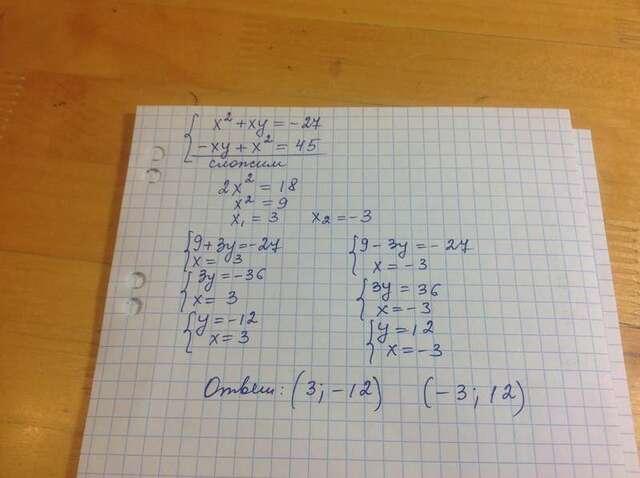 x² + xy = -27
-xy + x² = 45
сложим
2x² = 18
x² = 9
x₁ = 3 x₂ = -3
9 + 3y = -27
x = 3
3y = -36
x = 3
y = -12
x = 3
9 - 3y = -27
x = -3
3y = 36
x = -3
y = 12
x = -3
Ответ: (3; -12) (-3; 12)